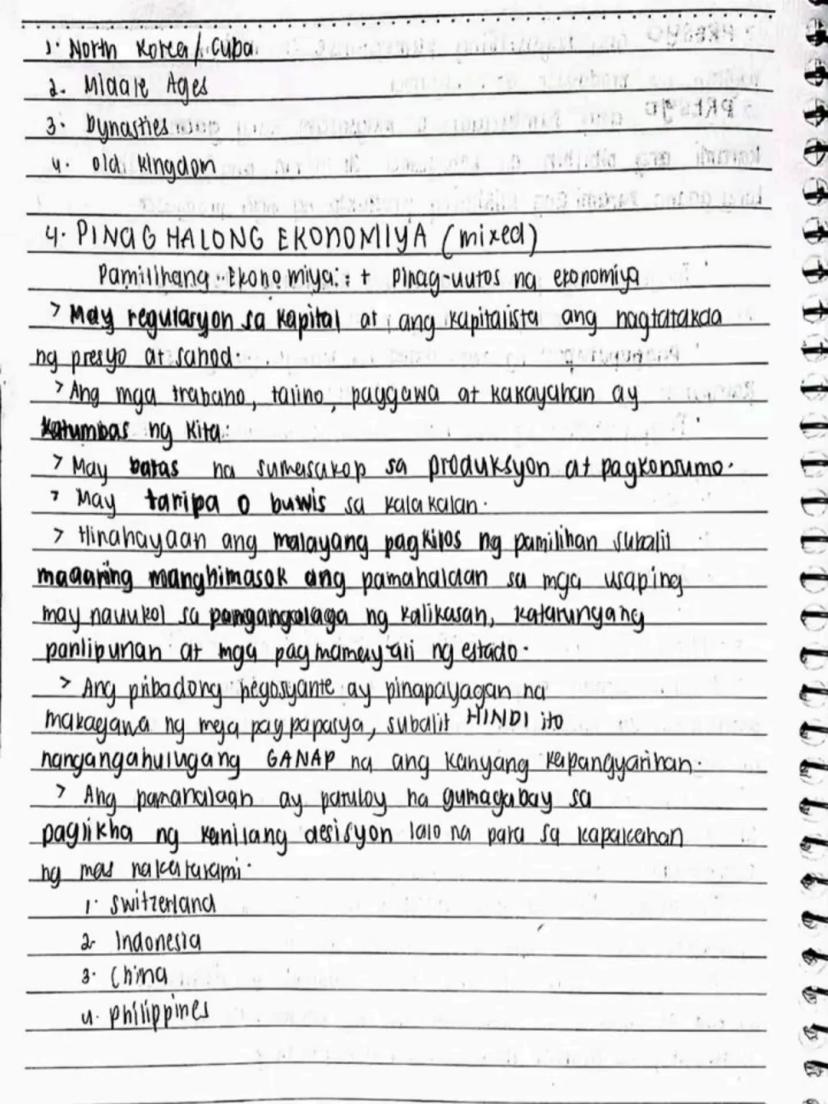 1. North Korea / Cuba
2. Middle Ages
3. Dynasties
4. Old Kingdom
4. PINAGHALONG EKONOMIYA (mixed)
Pamilihang Ekonomiya : + Pinag-uutos na ekonomiya
> May regulasyon sa kapital at ang kapitalista ang nagtatakda
ng presyo at sahod.
> Ang mga trabaho, talino, paggawa at kakayahan ay
katumbas ng kita.
> May batas na sumasakop sa produksyon at pagkonsumo.
> May taripa o buwis sa kalakalan.
> Hinahayaan ang malayang pagkilos ng pamilihan subalit
maaaring manghimasok ang pamahalaan sa mga usaping
may nauukol sa pangangalaga ng kalikasan, katarungang
panlipunan at mga pagmamay-ari ng estado.
> Ang pribadong negosyante ay pinapayagan na
makagawa ng mga pagpapasya, subalit HINDI ito
nangangahulugang GANAP na ang kanyang kapangyarihan.
> Ang pamahalaan ay patuloy na gumagabay sa
paglikha ng kanilang desisyon lalo na para sa kapakanan
ng mas nakararami.
1. Switzerland
2. Indonesia
3. China
4. Philippines